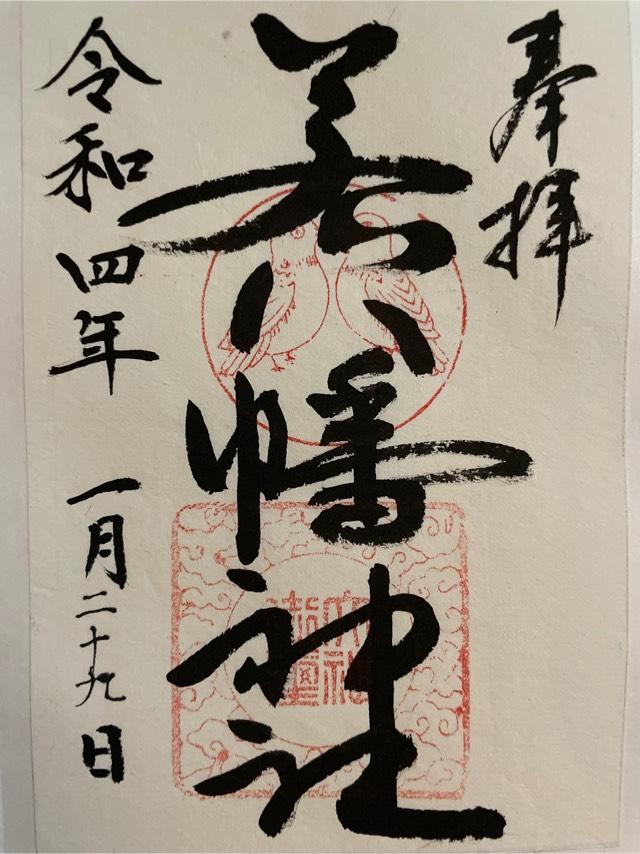 奉拝
若八幡神社
令和四年 一月二十九日